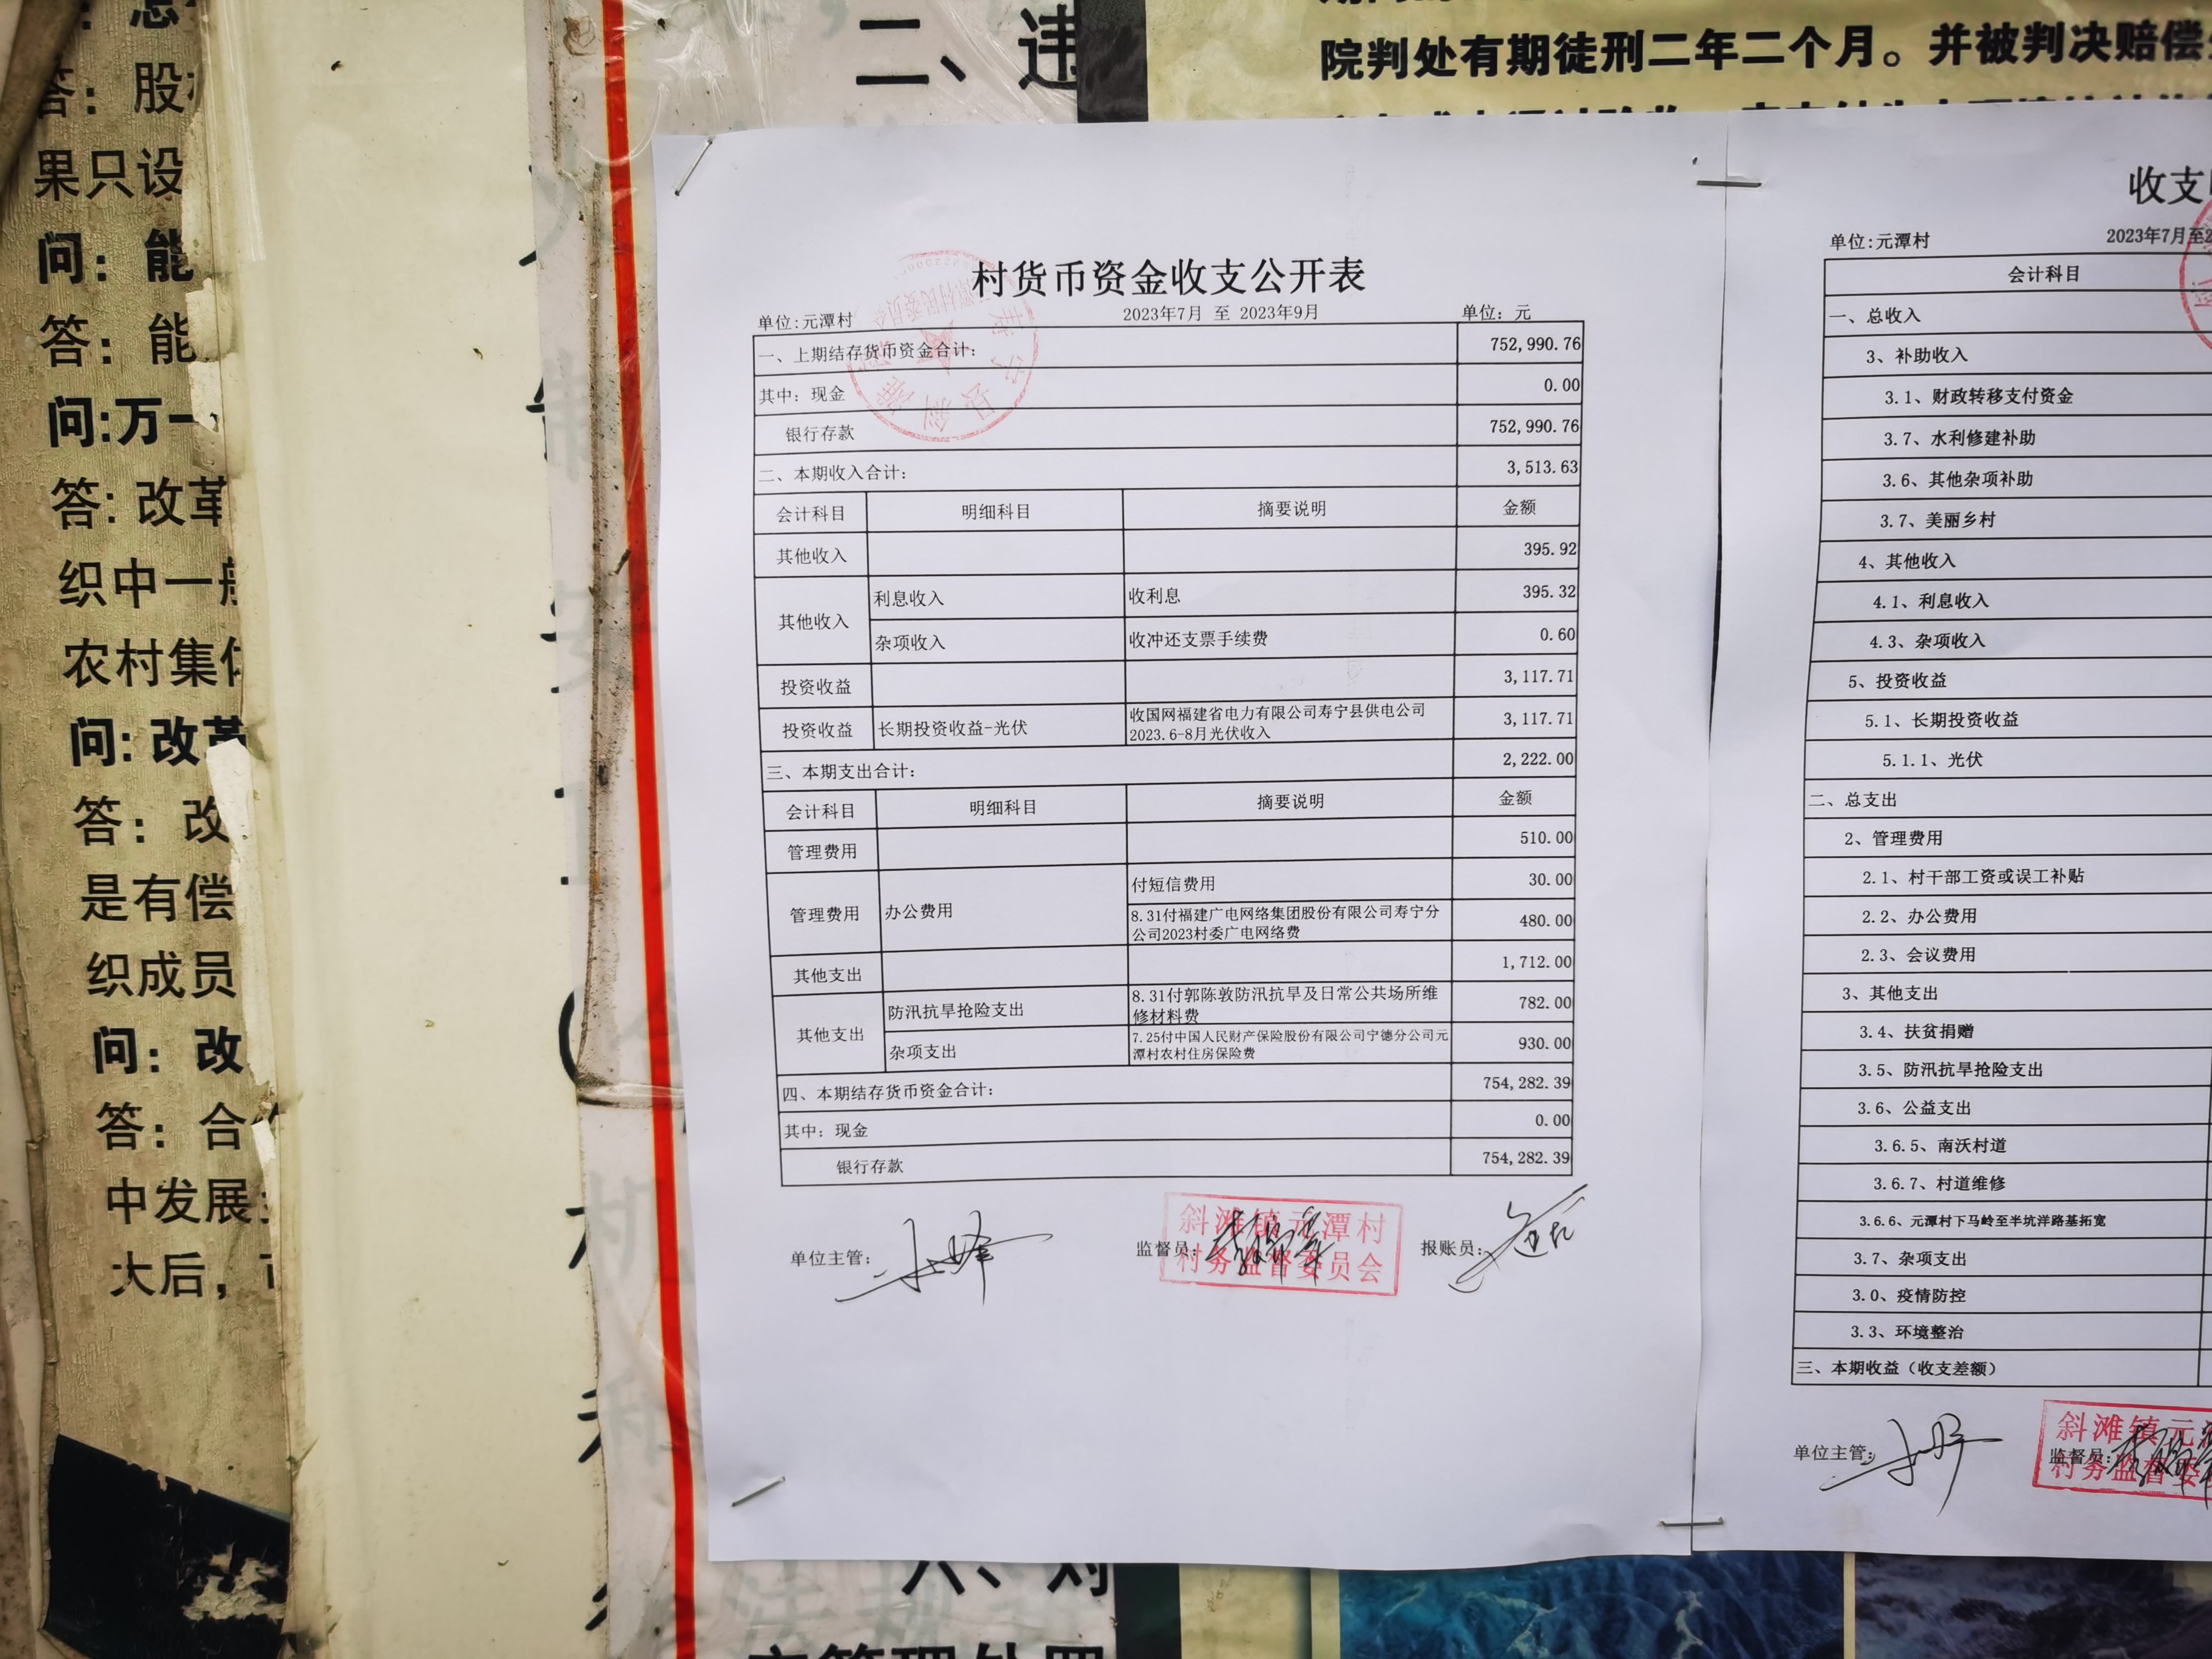 二、违
院判处有期徒刑二年二个月。并被判决赔偿
答：股
果只设
问：能
答：能
问:万一
答：改革
织中一般
农村集体
问：改革
答：改
是有偿
织成员
问：改
答：合作
中发展
大后，
村货币资金收支公开表
单位:元潭村 2023年7月 至 2023年9月 单位：元
一、上期结存货币资金合计： 752,990.76
其中：现金 0.00
银行存款 752,990.76
二、本期收入合计： 3,513.63
会计科目 明细科目 摘要说明 金额
其他收入 395.92
其他收入 利息收入 收利息 395.32
杂项收入 收冲还支票手续费 0.60
投资收益 3,117.71
投资收益 长期投资收益-光伏 收国网福建省电力有限公司寿宁县供电公司 3,117.71
2023.6-8月光伏收入
三、本期支出合计： 2,222.00
会计科目 明细科目 摘要说明 金额
管理费用 510.00
管理费用 办公费用 付短信费用 30.00
8.31付福建广电网络集团股份有限公司寿宁分 480.00
公司2023村委广电网络费
其他支出 1,712.00
其他支出 防汛抗旱抢险支出 8.31付郭陈敦防汛抗旱及日常公共场所维 782.00
修材料费
杂项支出 7.25付中国人民财产保险股份有限公司宁德分公司元 930.00
潭村农村住房保险费
四、本期结存货币资金合计： 754,282.39
其中：现金 0.00
银行存款 754,282.39
单位主管： 监督员： 报账员：
斜滩镇元潭村
村务监督委员会
收支
单位:元潭村 2023年7月至2
会计科目
一、总收入
3、补助收入
3.1、财政转移支付资金
3.7、水利修建补助
3.6、其他杂项补助
3.7、美丽乡村
4、其他收入
4.1、利息收入
4.3、杂项收入
5、投资收益
5.1、长期投资收益
5.1.1、光伏
二、总支出
2、管理费用
2.1、村干部工资或误工补贴
2.2、办公费用
2.3、会议费用
3、其他支出
3.4、扶贫捐赠
3.5、防汛抗旱抢险支出
3.6、公益支出
3.6.5、南沃村道
3.6.7、村道维修
3.6.6、元潭村下马岭至半坑洋路基拓宽
3.7、杂项支出
3.0、疫情防控
3.3、环境整治
三、本期收益（收支差额）
单位主管： 监督员：
斜滩镇元
村务监督委